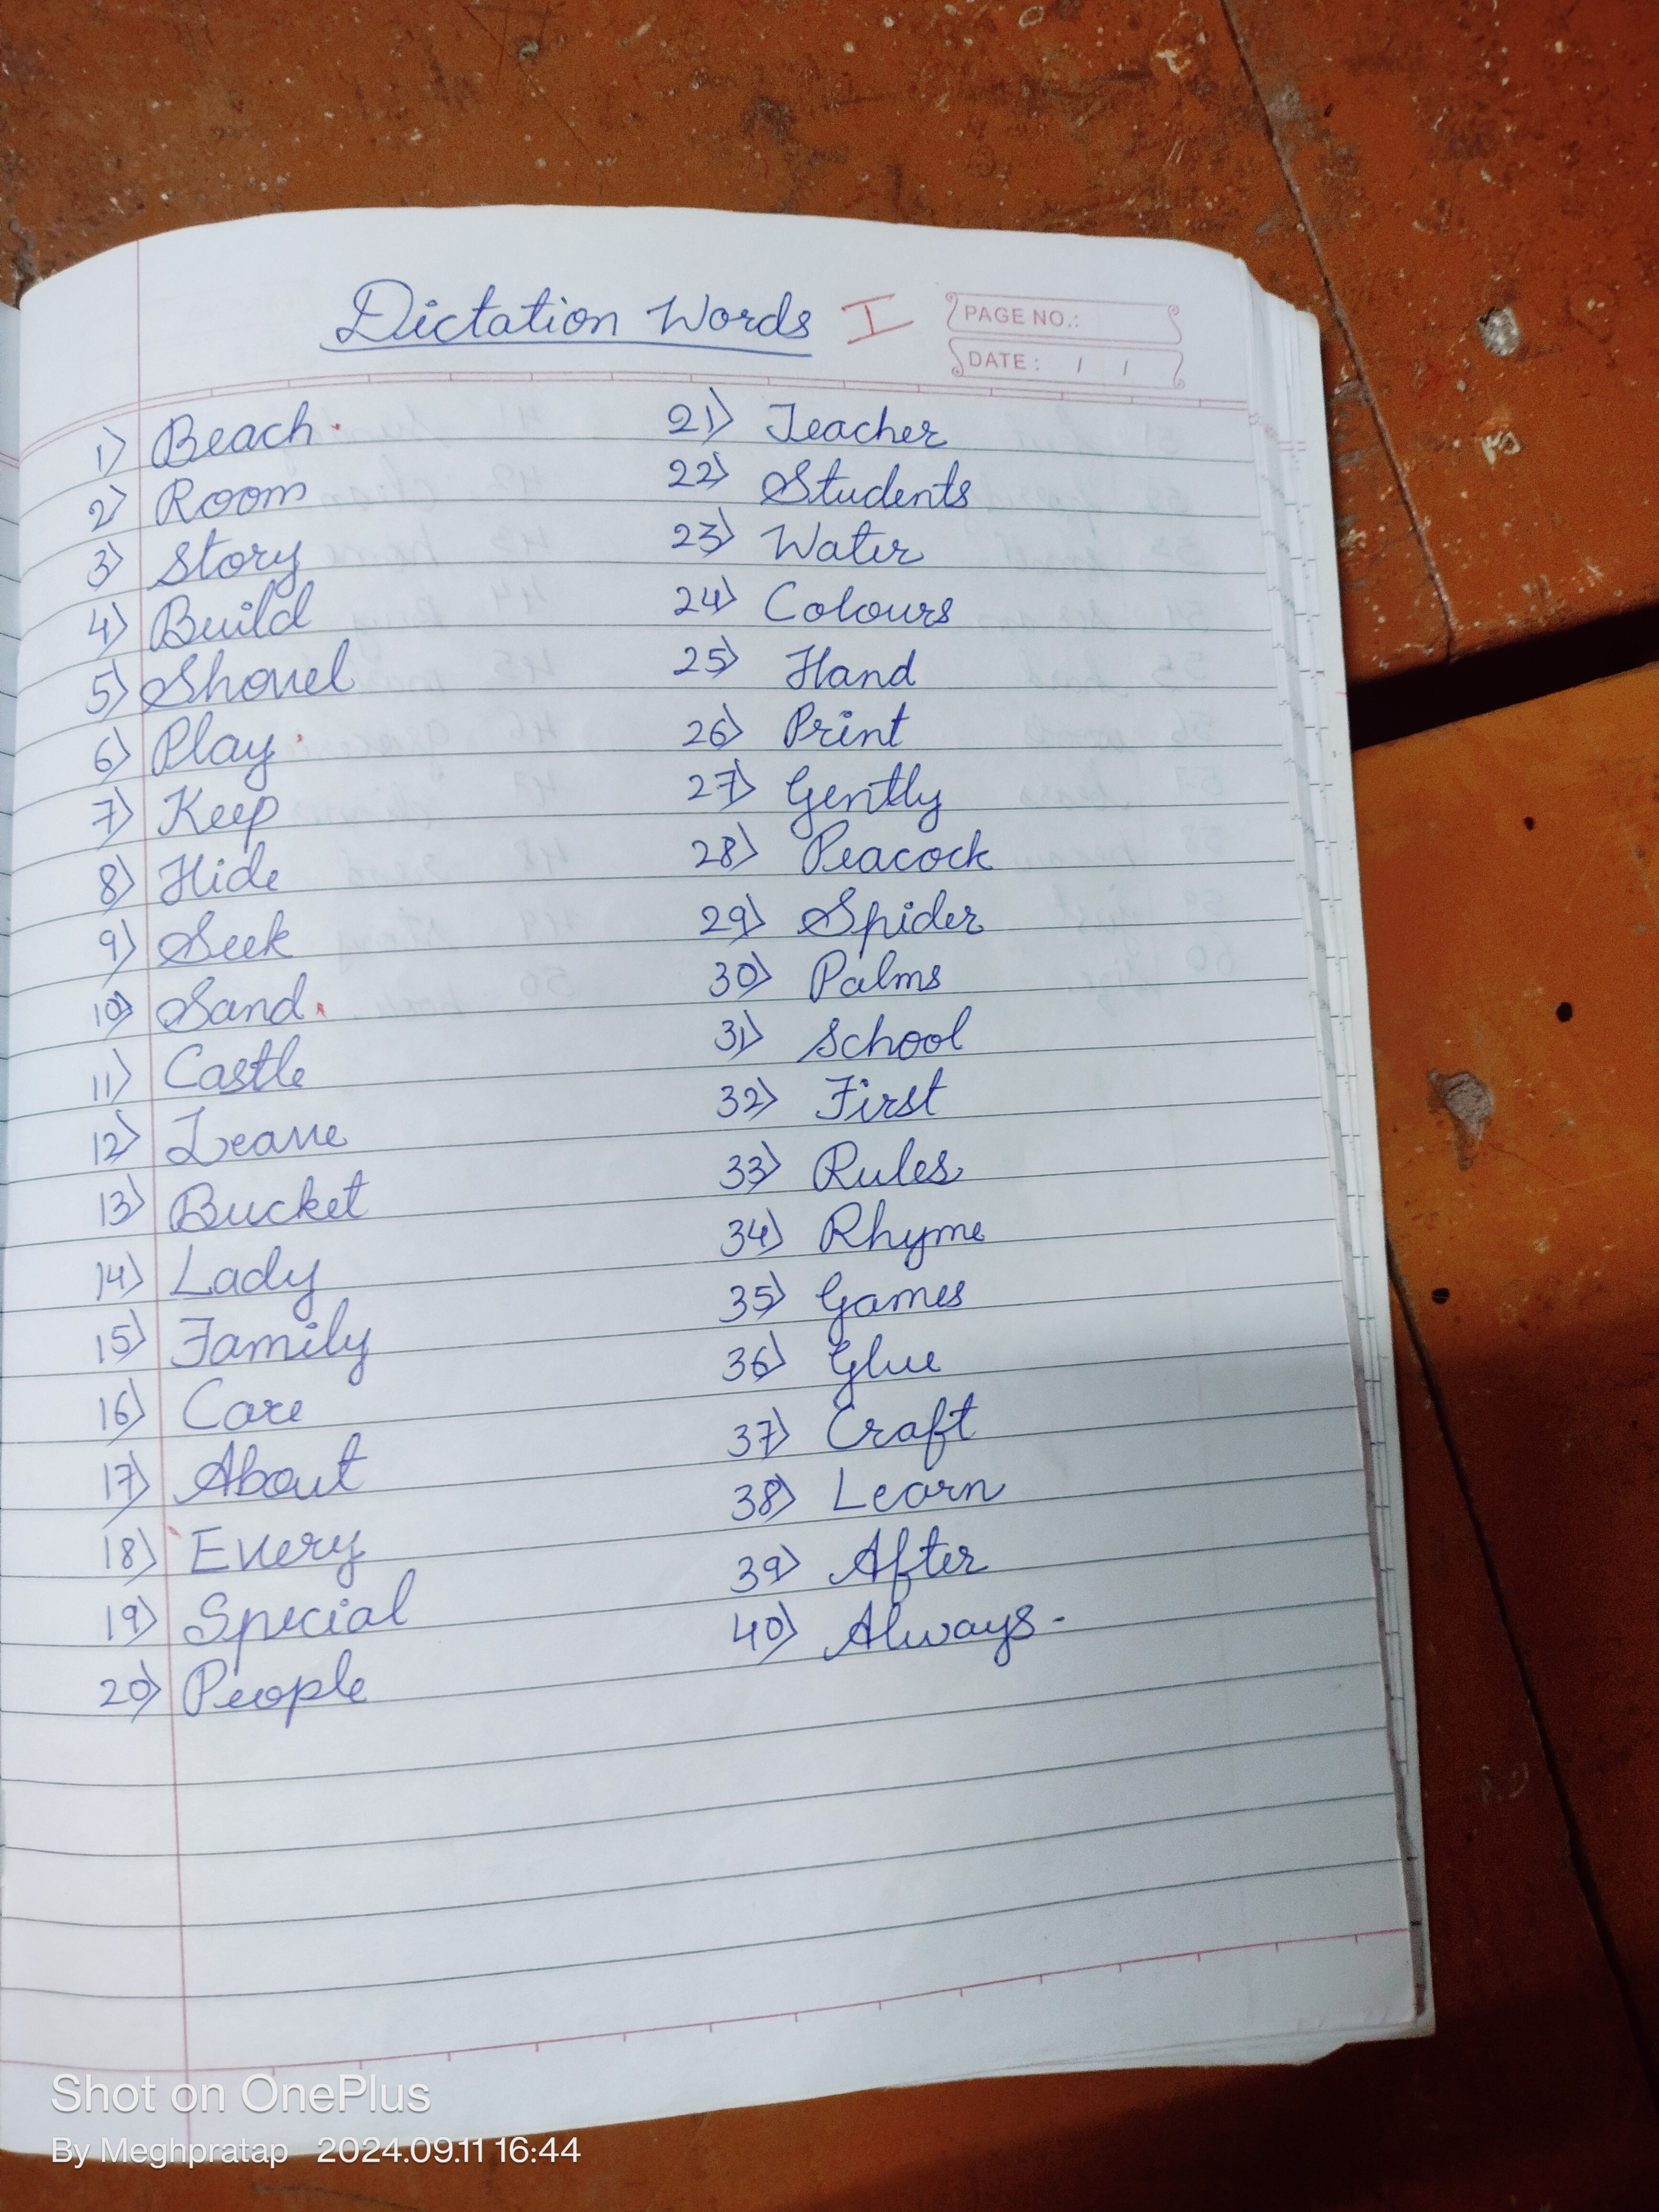 Dictation Words I
PAGE NO.:
DATE: / /
1) Beach
2) Room
3) Story
4) Build
5) Shovel
6) Play
7) Keep
8) Hide
9) Seek
10) Sand
11) Castle
12) Leave
13) Bucket
14) Lady
15) Family
16) Care
17) About
18) Every
19) Special
20) People
21) Teacher
22) Students
23) Water
24) Colours
25) Hand
26) Print
27) Gently
28) Peacock
29) Spider
30) Palms
31) School
32) First
33) Rules
34) Rhyme
35) Games
36) Glue
37) Craft
38) Learn
39) After
40) Always-
Shot on OnePlus
By Meghpratap 2024.09.11 16:44